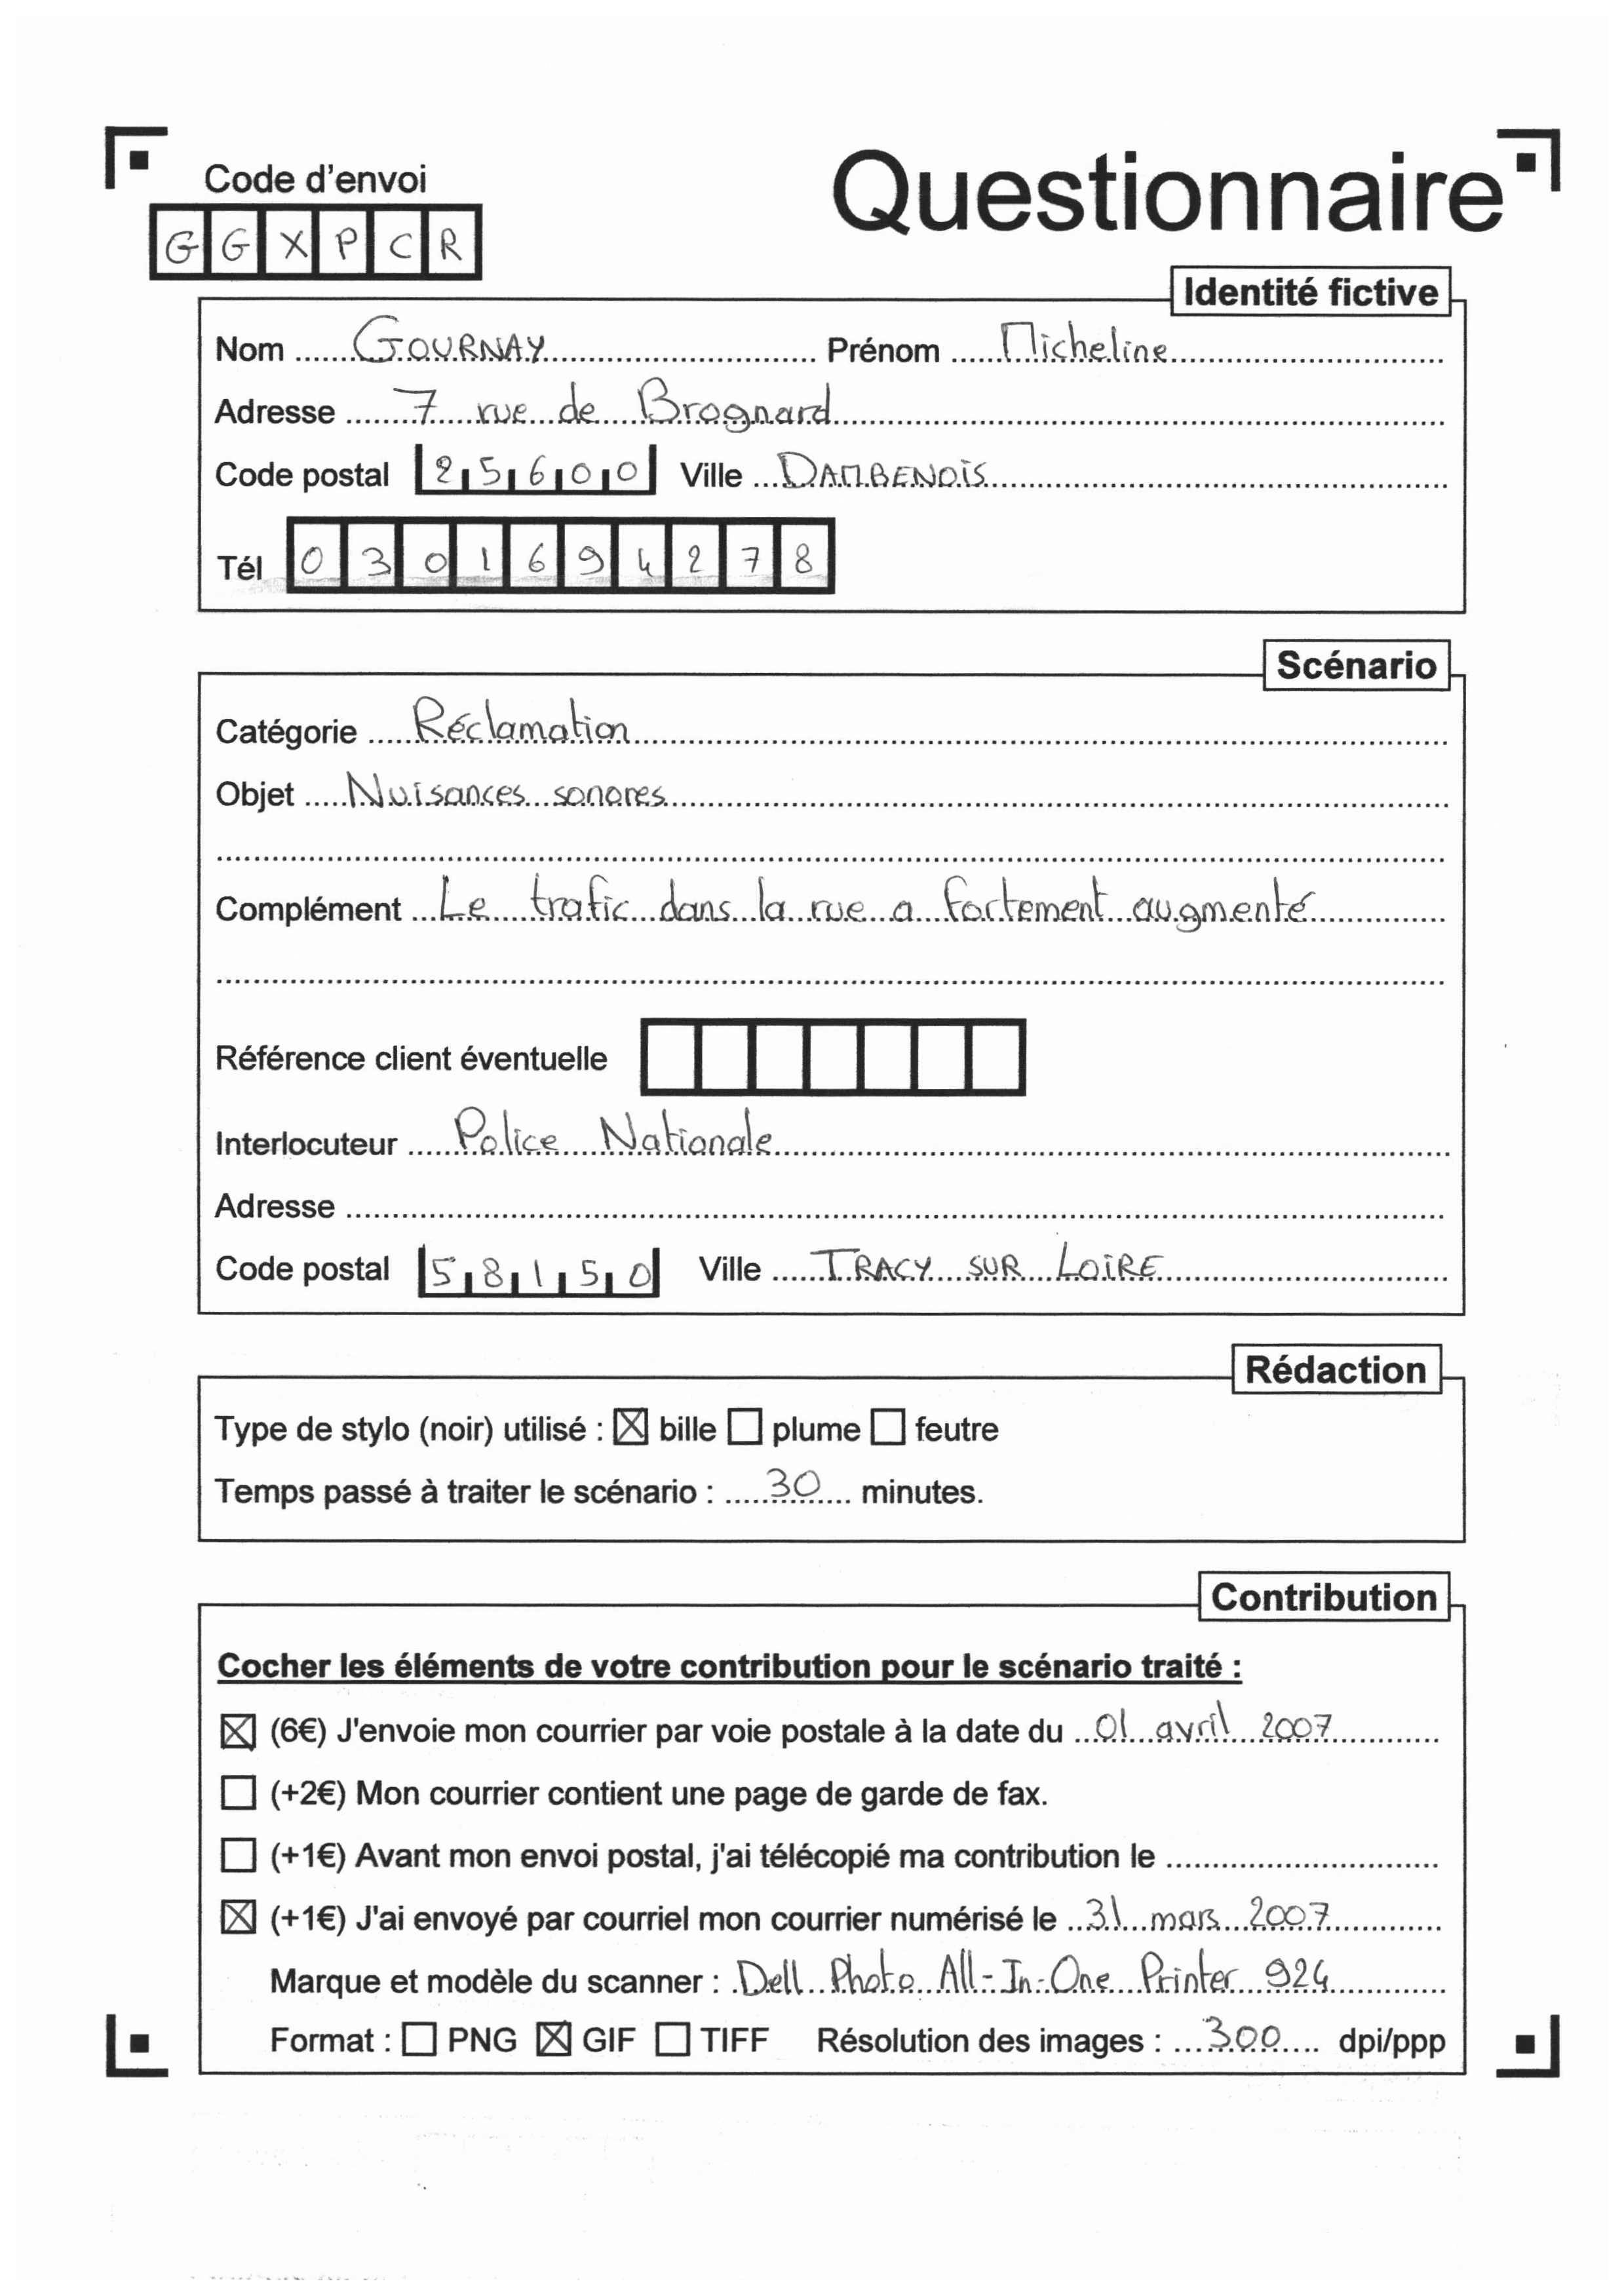 Code d'envoi
Questionnaire
GGXPCR
Identité fictive
Nom GOURNAY Prénom Micheline
Adresse 7 rue de Brognard
Code postal 25600 Ville DAMBENOIS
Tél 0301694278
Scénario
Catégorie Réclamation
Objet Nuisances sonores
Complément Le trafic dans la rue a fortement augmenté
Référence client éventuelle
Interlocuteur Police Nationale
Adresse
Code postal 58150 Ville TRACY SUR LOIRE
Rédaction
Type de stylo (noir) utilisé : ☒ bille ☐ plume ☐ feutre
Temps passé à traiter le scénario : 30 minutes.
Contribution
Cocher les éléments de votre contribution pour le scénario traité :
☒ (6€) J'envoie mon courrier par voie postale à la date du 01 avril 2007
☐ (+2€) Mon courrier contient une page de garde de fax.
☐ (+1€) Avant mon envoi postal, j'ai télécopié ma contribution le
☒ (+1€) J'ai envoyé par courriel mon courrier numérisé le 31 mars 2007
Marque et modèle du scanner : Dell Photo All-In-One Printer 924
Format : ☐ PNG ☒ GIF ☐ TIFF Résolution des images : 300 dpi/ppp